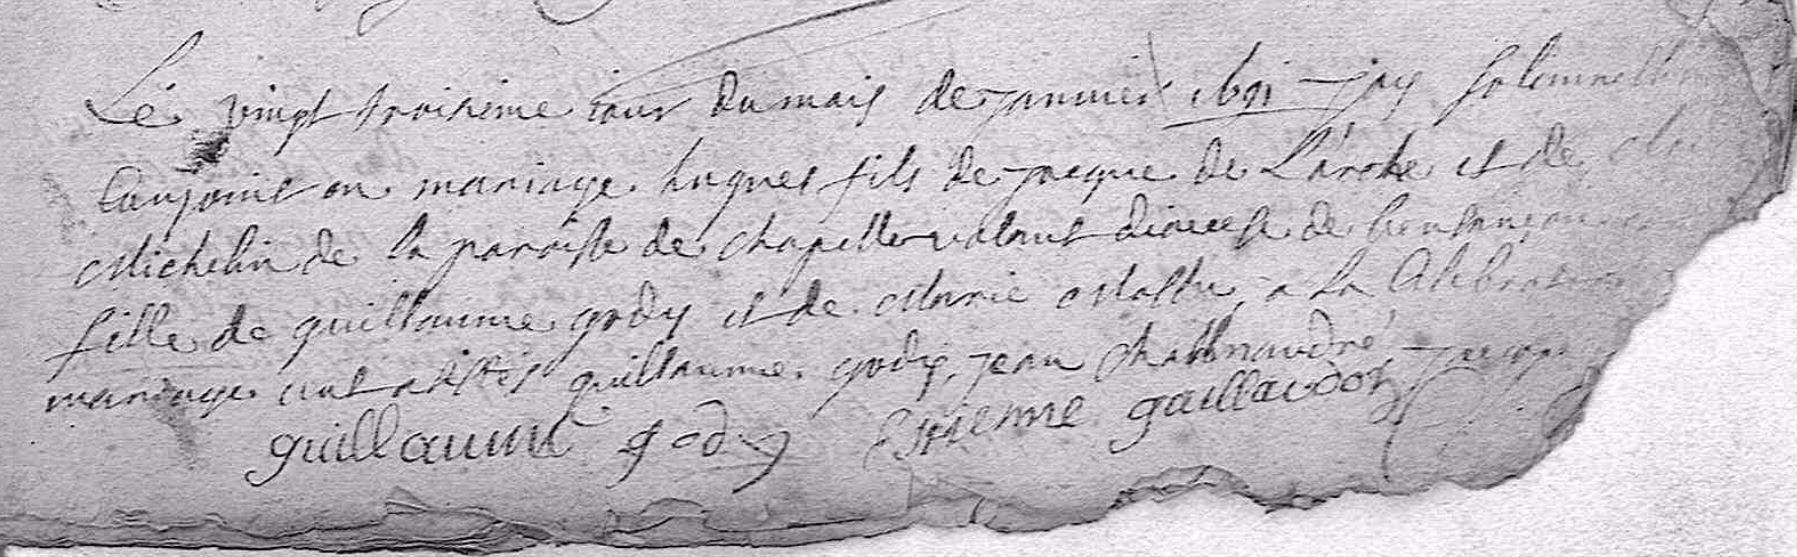 Le vingt troisieme iour du mois de januier 1691 jay solemnell
conjoint en mariage hugues fils de jacque de Laroke et de
Michelin de la paroisse de chapelle volant diocese de besançon
fille de guillaume gody et de Marie a la
mariage ont assistés guillaume gody, jean
guillaume gody Estienne gaillaudon